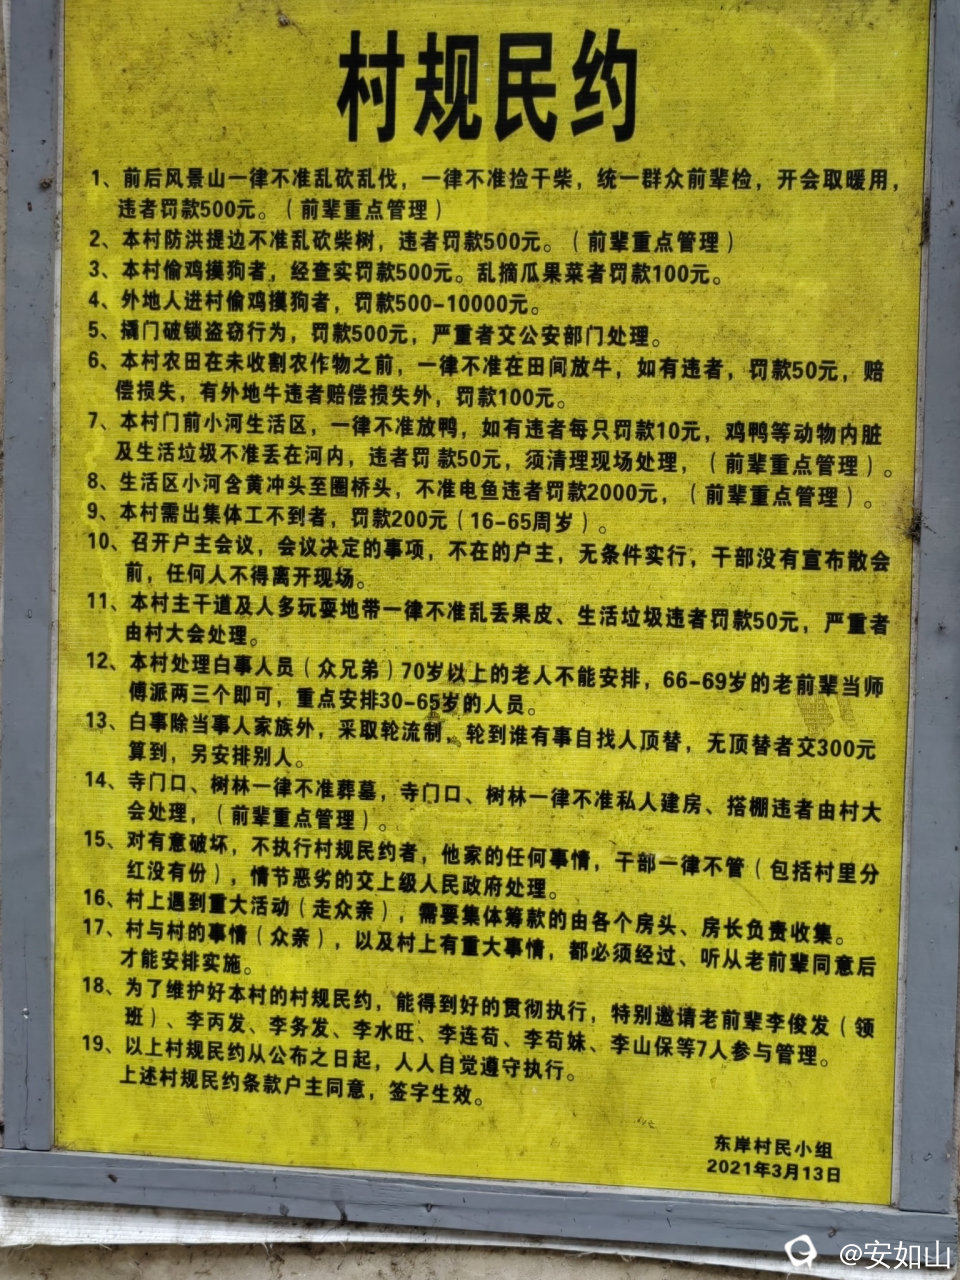 村规民约
1、前后风景山一律不准乱砍乱伐，一律不准捡干柴，统一群众前辈检，开会取暖用，
违者罚款500元。（前辈重点管理）
2、本村防洪提边不准乱砍柴树，违者罚款500元。（前辈重点管理）
3、本村偷鸡摸狗者，经查实罚款500元。乱摘瓜果菜者罚款100元。
4、外地人进村偷鸡摸狗者，罚款500-10000元。
5、撬门破锁盗窃行为，罚款500元，严重者交公安部门处理。
6、本村农田在未收割农作物之前，一律不准在田间放牛，如有违者，罚款50元，赔
偿损失，有外地牛违者赔偿损失外，罚款100元。
7、本村门前小河生活区，一律不准放鸭，如有违者每只罚款10元，鸡鸭等动物内脏
及生活垃圾不准丢在河内，违者罚 款50元，须清理现场处理，（前辈重点管理）。
8、生活区小河含黄冲头至圈桥头，不准电鱼违者罚款2000元，（前辈重点管理）。
9、本村需出集体工不到者，罚款200元（16-65周岁）。
10、召开户主会议，会议决定的事项，不在的户主，无条件实行，干部没有宣布散会
前，任何人不得离开现场。
11、本村主干道及人多玩耍地带一律不准乱丢果皮、生活垃圾违者罚款50元，严重者
由村大会处理。
12、本村处理白事人员（众兄弟）70岁以上的老人不能安排，66-69岁的老前辈当师
傅派两三个即可，重点安排30-65岁的人员。
13、白事除当事人家族外，采取轮流制，轮到谁有事自找人顶替，无顶替者交300元
算到，另安排别人。
14、寺门口、树林一律不准葬墓，寺门口、树林一律不准私人建房、搭棚违者由村大
会处理，（前辈重点管理）。
15、对有意破坏，不执行村规民约者，他家的任何事情，干部一律不管（包括村里分
红没有份），情节恶劣的交上级人民政府处理。
16、村上遇到重大活动（走众亲），需要集体筹款的由各个房头、房长负责收集。
17、村与村的事情（众亲），以及村上有重大事情，都必须经过、听从老前辈同意后
才能安排实施。
18、为了维护好本村的村规民约，能得到好的贯彻执行，特别邀请老前辈李俊发（领
班）、李丙发、李务发、李水旺、李连苟、李苟妹、李山保等7人参与管理。
19、以上村规民约从公布之日起，人人自觉遵守执行。
上述村规民约条款户主同意，签字生效。
东岸村民小组
2021年3月13日
@安如山